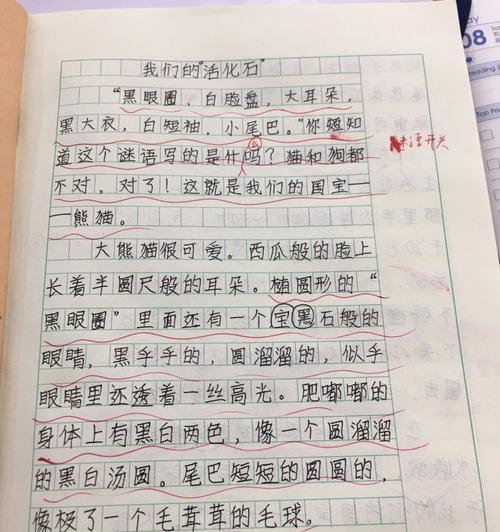 我们的"活化石"
"黑眼圈，白脸盘，大耳朵，
黑大衣，白短袖，小尾巴。"你知
道这个谜语写的是什么吗？猫和狗都
谜语开头
不对，对了！这就是我们的国宝—
—熊猫。
大熊猫很可爱。西瓜般的脸上
长着半圆尺般的耳朵。椭圆形的"
黑眼圈"里面还有一个宝黑石般的
眼睛，黑乎乎的，圆溜溜的，似乎
眼睛里还透着一丝高光。肥嘟嘟的
身体上有黑白两色，像一个圆溜溜
的黑白汤圆。尾巴短短的圆圆的，
像极了一个毛茸茸的毛球。
08